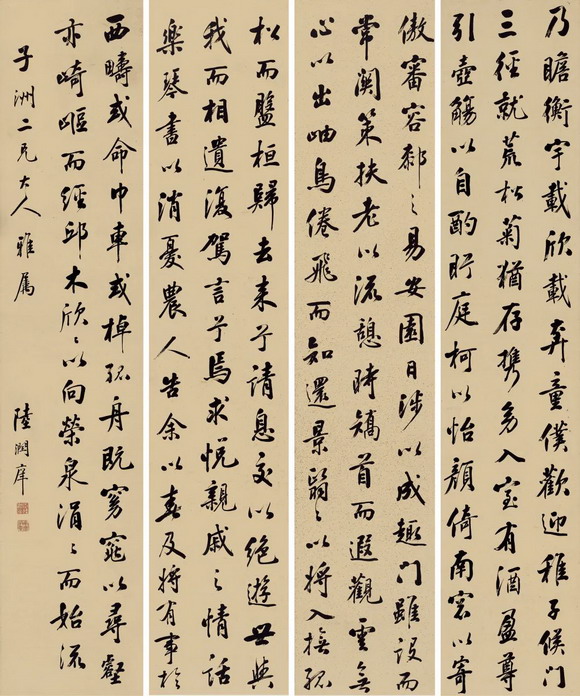 乃瞻衡宇載欣載奔童僕歡迎稚子候門
三徑就荒松菊猶存攜幼入室有酒盈尊
引壺觴以自酌眄庭柯以怡顏倚南窗以寄
傲審容厀之易安園日涉以成趣門雖設而
常關策扶老以流憩時矯首而遐觀雲無
心以出岫鳥倦飛而知還景翳〻以將入撫孤
松而盤桓歸去來兮請息交以絕遊世與
我而相遺復駕言兮焉求悅親戚之情話
樂琴書以消憂農人告余以春及將有事於
西疇或命巾車或棹孤舟既窈窕以尋壑
亦崎嶇而經邱木欣〻以向榮泉涓〻而始流
子洲二兄大人雅屬 陸潤庠